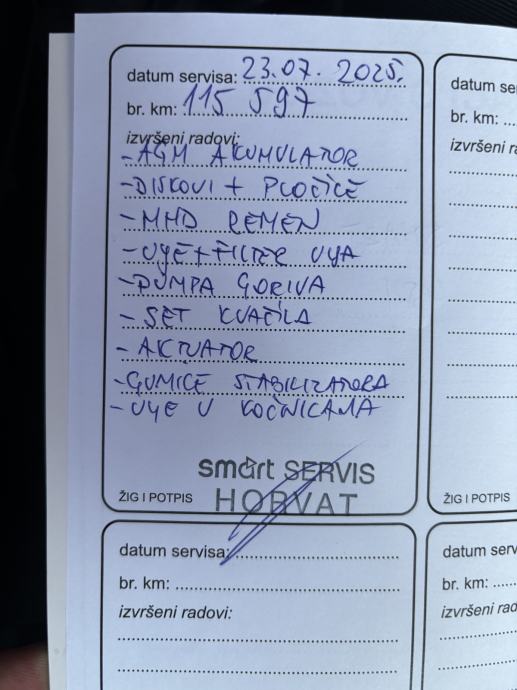 datum servisa: 23.07. 2025.
br. km: 115 597
izvršeni radovi:
- AGM AKUMULATOR
- DISKOVI + PLOČICE
- MHD REMEN
- ULJE + FILTER ULJA
- PUMPA GORIVA
- SET KVAČILA
- AKTUATOR
- GUMICE STABILIZATORA
- ULJE U KOČNICAMA
smart SERVIS
ŽIG I POTPIS HORVAT
datum servisa:
br. km:
izvršeni radovi:
datum se
br. km:
izvršeni ra
ŽIG I POTPIS
datum serv
br. km:
izvršeni rad